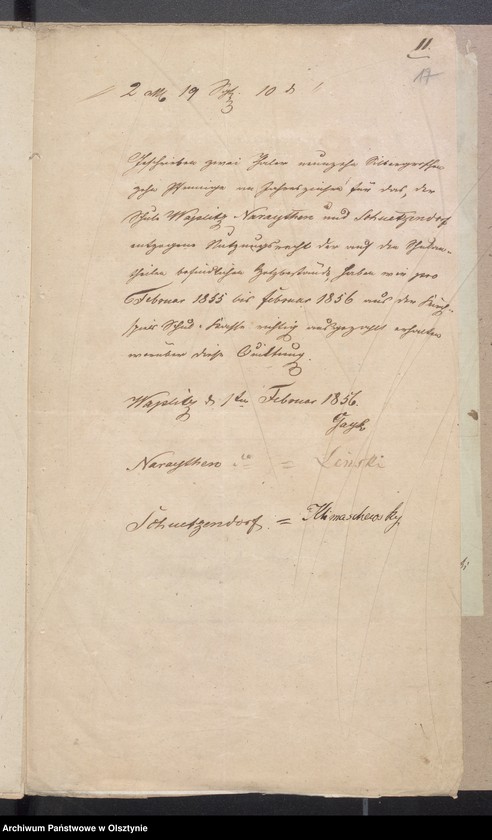 11.
17
2 rℳ 19 Sgr. 10 d
Geschrieben zwei Thaler neunzehn Silbergroschen
zehn Pfennige an Jahreszinsen für das, der
Schule Waplitz, Naraythen und Schuetzendorf
entzogene Nutzungsrecht der auf den Schulan-
theilen befindlichen Holzbestände haben wir pro
Februar 1855 bis Februar 1856 aus der Kirch-
spiels Schul-Kasse richtig ausgezahlt erhalten
worüber diese Quittung.
Waplitz d 1ten Februar 1856.
Naraythen = Linski
Schuetzendorf. = Klimaschewsky
Archiwum Państwowe w Olsztynie